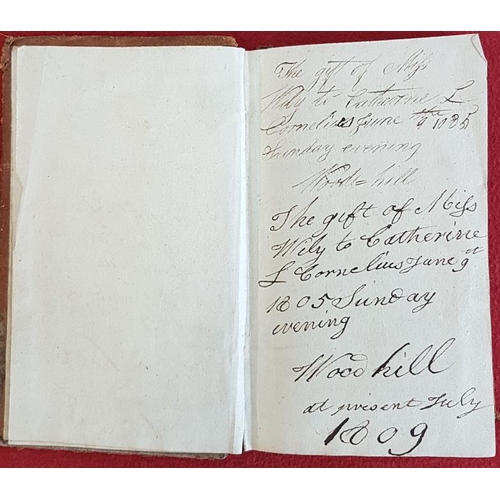 The gift of Miſs
Wily to Catherine L
Cornelius June 9th 1805
Sunday evening
Wood=hill
The gift of Miſs
Wily to Catherine
L Cornelius June 9th
1805 Sunday
evening
Wood hill
at present July
1809